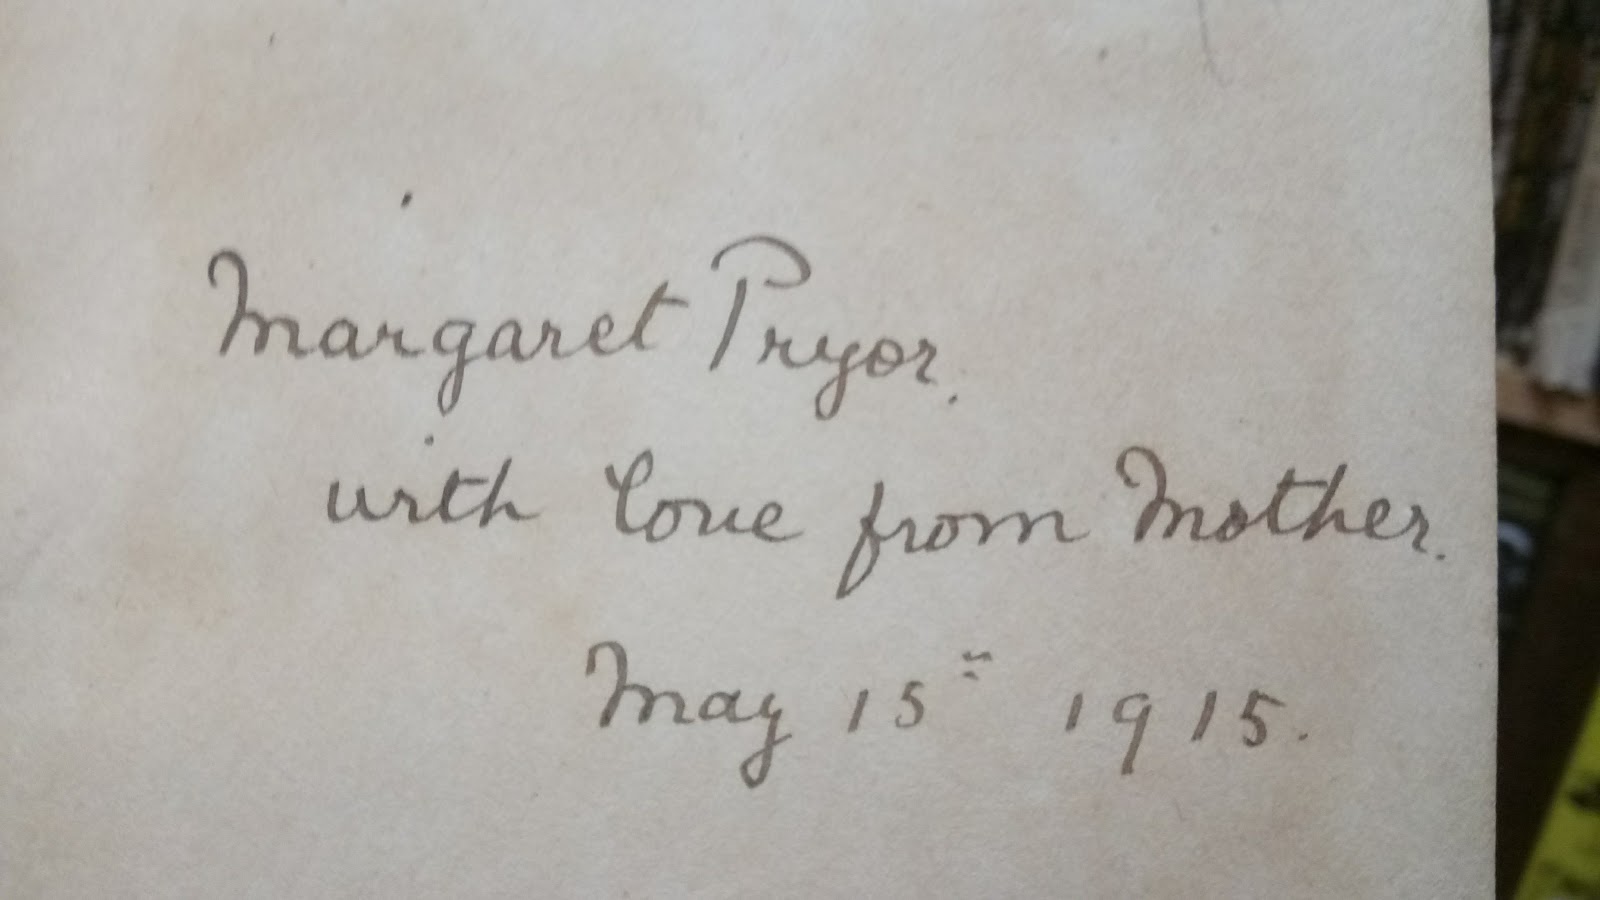 Margaret Pryor.
with love from Mother.
May 15th 1915.